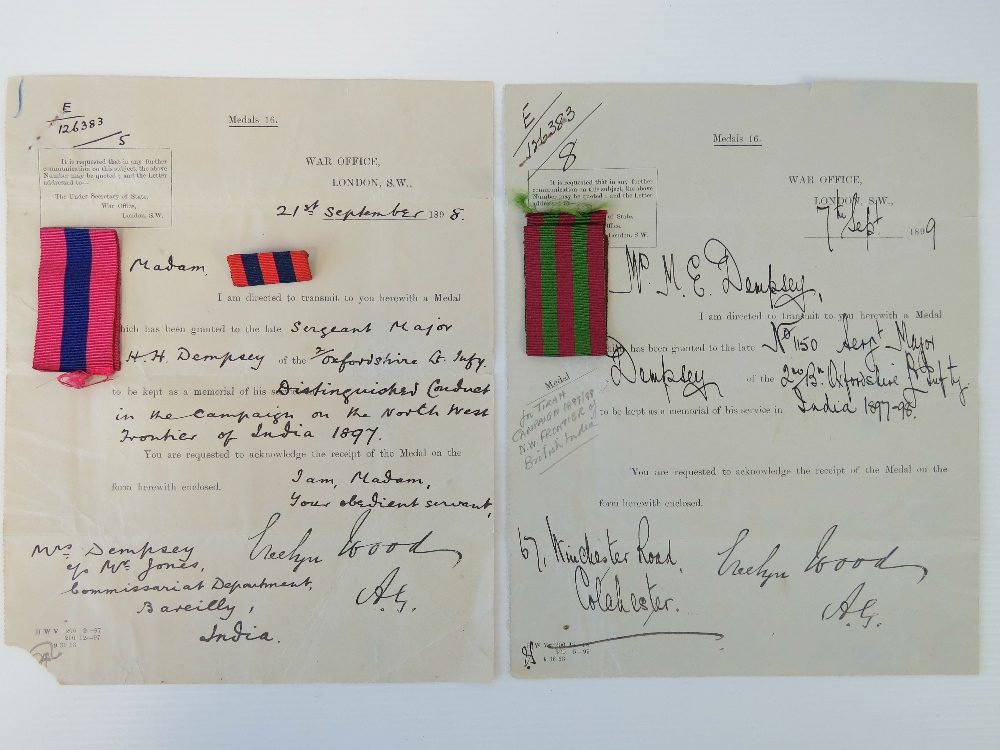 E
126383
5
Medals 16.
It is requested that in any further
communication on this subject, the above
Number may be quoted; and the Letter
addressed to—
The Under Secretary of State,
War Office,
London, S.W.
WAR OFFICE,
LONDON, S.W.,
21st September 1898.
Madam,
I am directed to transmit to you herewith a Medal
which has been granted to the late Sergeant Major
H. H. Dempsey of the 2/Oxfordshire Lt. Infy.
to be kept as a memorial of his Distinguished Conduct
in the Campaign on the North West
Frontier of India 1897.
You are requested to acknowledge the receipt of the Medal on the
form herewith enclosed.
I am, Madam,
Your obedient servant,
Evelyn Wood
A.G.
Mrs Dempsey
c/o Mr Jones,
Commissariat Department,
Bareilly,
India.
H W V 200 9—97
200 12—97
E
126383
8
Medals 16.
It is requested that in any further
communication on this subject, the above
Number may be quoted; and the Letter
addressed to—
of State,
London, S.W.
WAR OFFICE,
LONDON, S.W.,
7th Sept 1899
M. E. Dempsey,
I am directed to transmit to you herewith a Medal
which has been granted to the late No 1150 Sergt Major
Dempsey of the 2nd Bn Oxfordshire Lt Infty.
to be kept as a memorial of his service in India 1897-98.
Medal
for TIRAH
CAMPAIGN 1897/98
N.W. FRONTIER of
British India
You are requested to acknowledge the receipt of the Medal on the
form herewith enclosed.
Evelyn Wood
A.G.
67, Winchester Road,
Colchester.